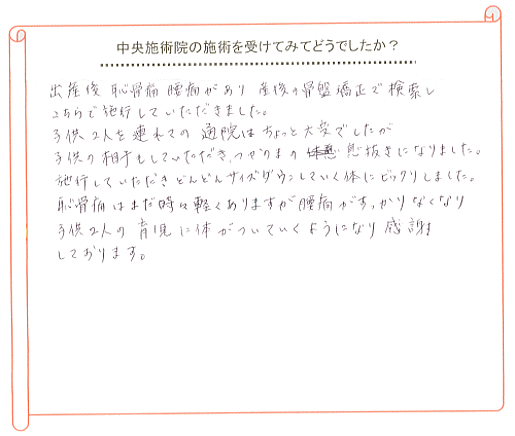 中央施術院の施術を受けてみてどうでしたか？
出産後 恥骨痛 腰痛があり 産後の骨盤矯正で検索し
こちらで施行していただきました。
子供2人を連れての 通院はちょっと大変でしたが
子供の相手もしていただき、つかのまの 息抜きになりました。
施行していただき どんどんサイズダウンしていく体にビックリしました。
恥骨痛はまだ時々軽くありますが腰痛がすっかりなくなり
子供2人の 育児に体がついていくようになり 感謝
しております。